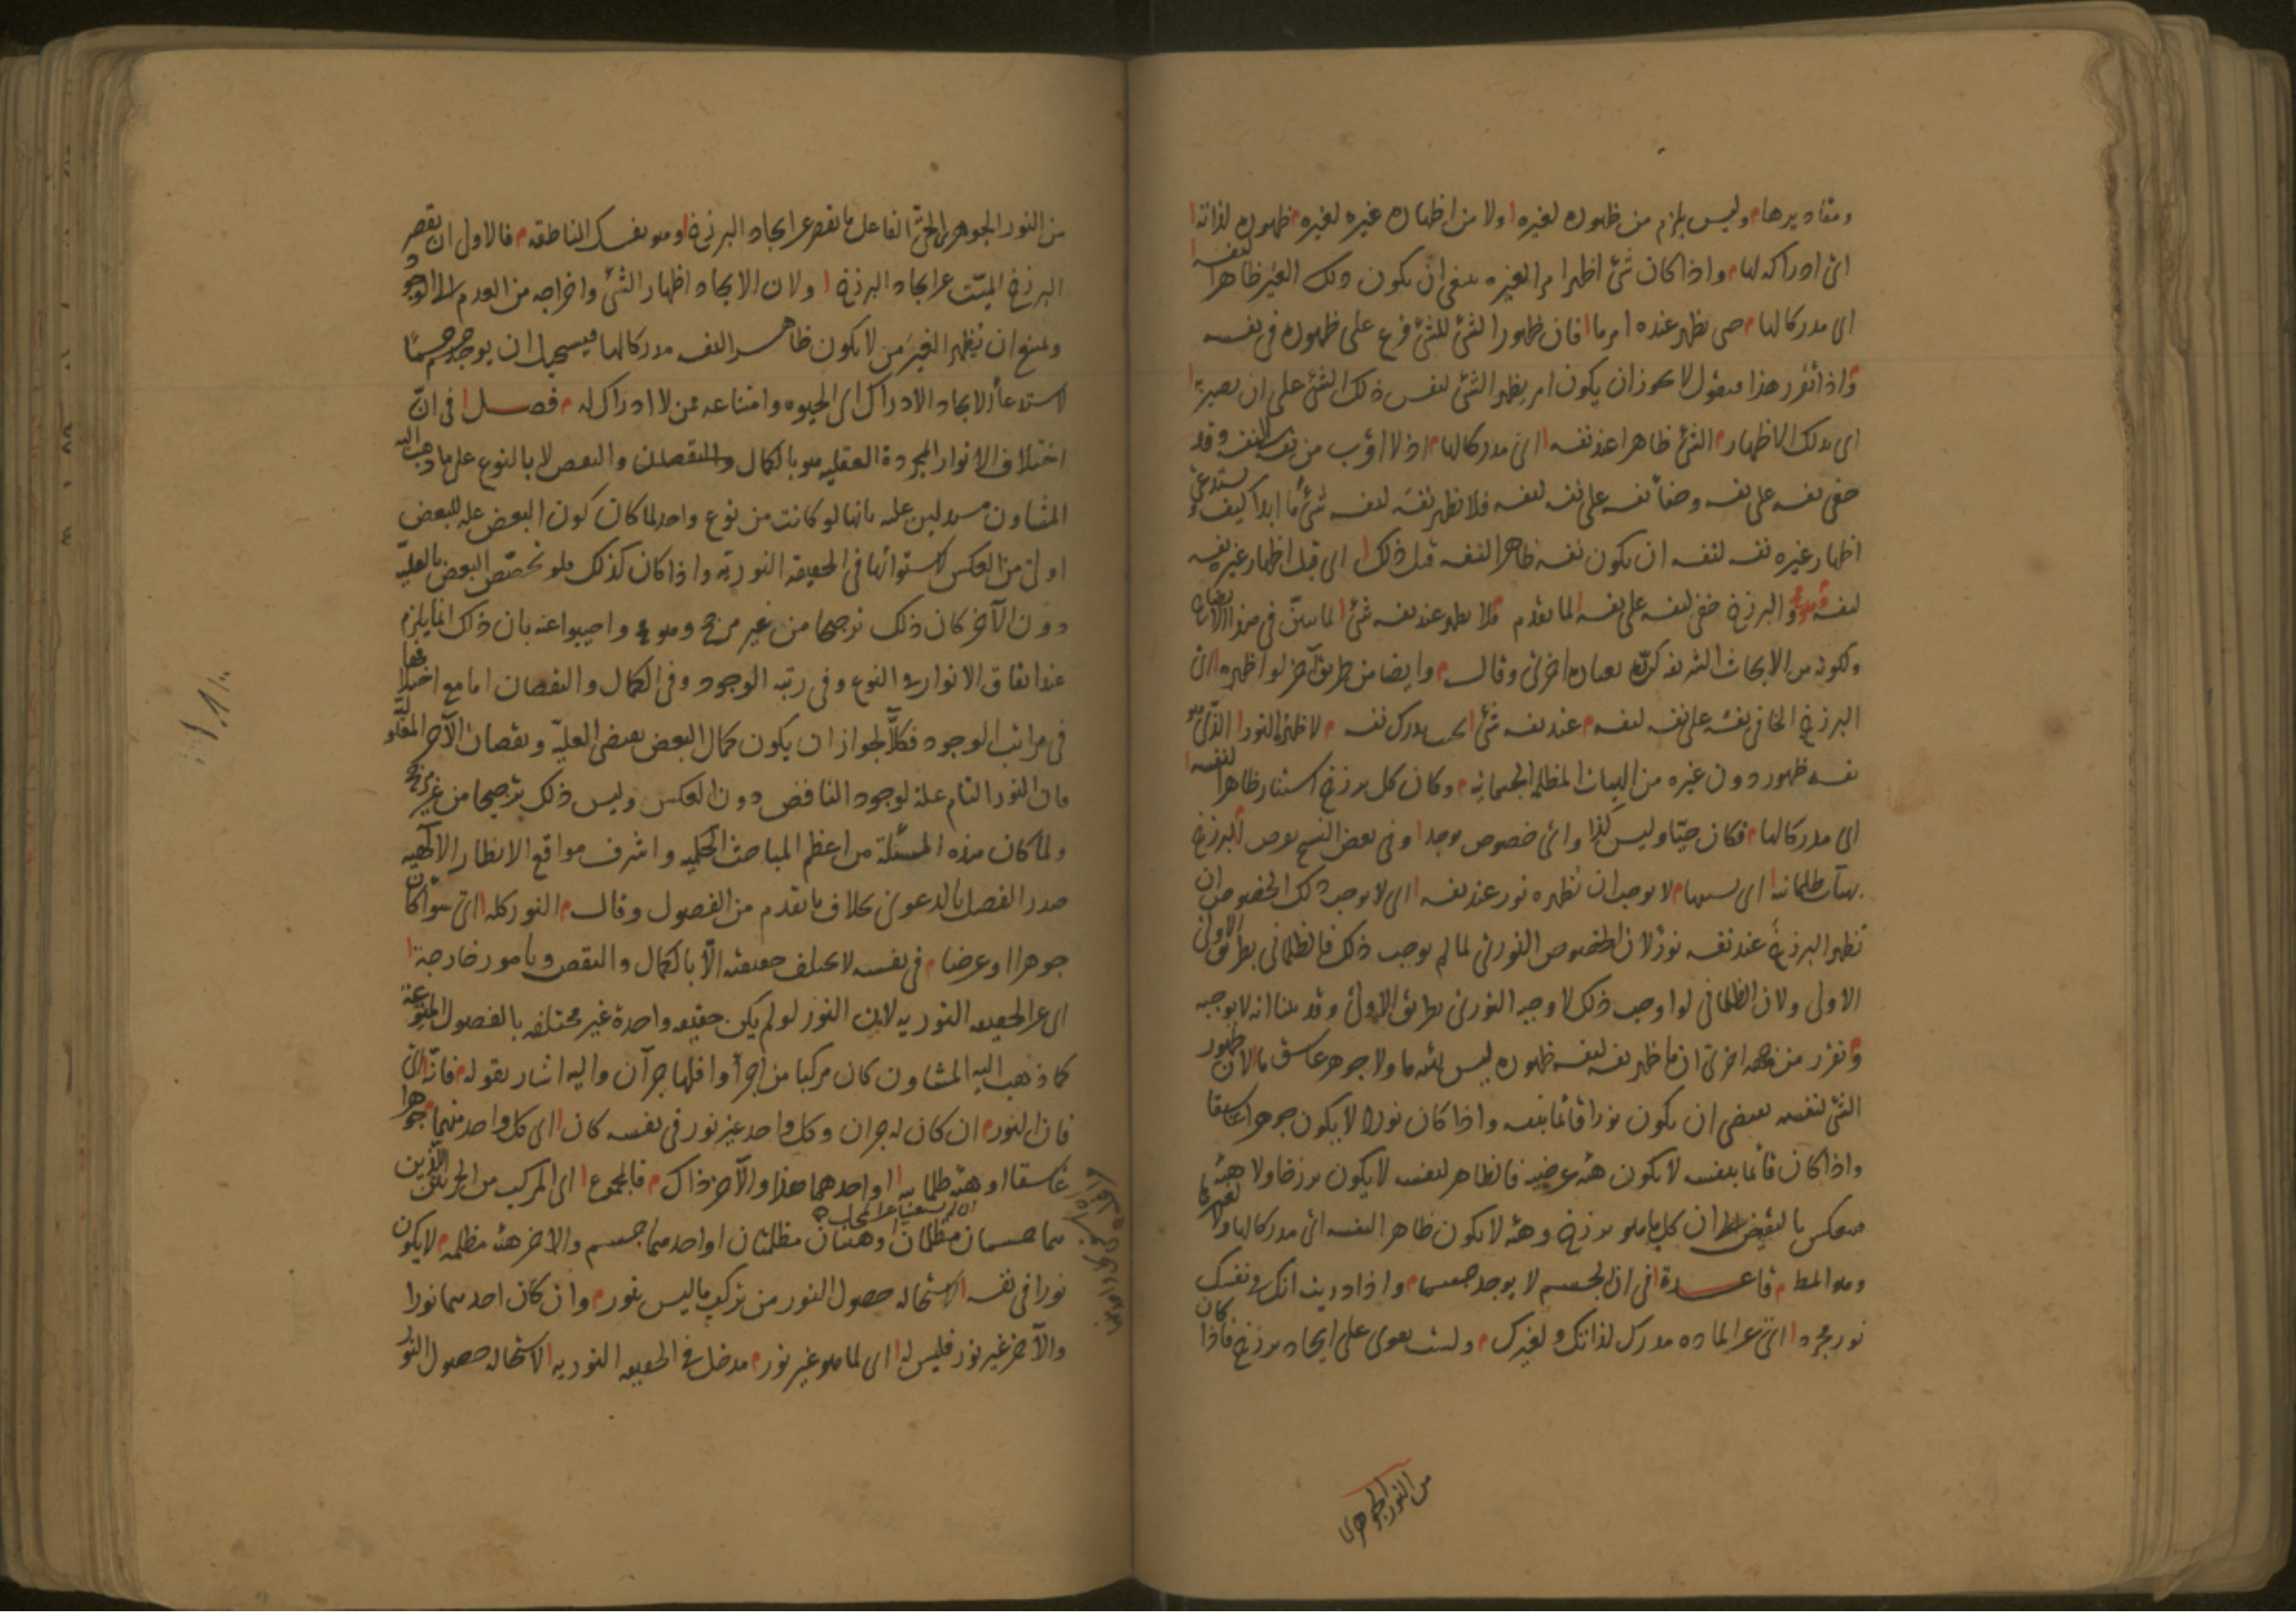 ومقاديرها م وليس يلزم من ظهوره لغيره ا ولا من اظهاره غيره لغيره م ظهوره لذاته ا
اى ادراكه لها م واذا كان شئ اظهر امرا لغيره ينبغى ان يكون ذلك الغير ظاهرا لنفسه ا
اى مدركا لها م حتى يظهر عنده امر ما ا فان ظهور الشئ للشئ فرع على ظهوره فى نفسه
واذا تقرر هذا فنقول لا يجوز ان يكون امر يظهر الشئ لنفس ذلك الشئ على ان يصيره ا
اى بذلك الاظهار م الشئ ظاهرا عند نفسه ا اى مدركا لها م اذ لا اقرب من نفسه لنفسه وقد
خفى نفسه على نفسه وخفاء نفسه على نفسه لنفسه فلا تظهر نفسه لنفسه شئ ما ابدا كيف ويستدعى
اظهار غيره نفسه لنفسه ان يكون نفسه ظاهرا لنفسه قبل ذلك ا اى قبل اظهار غيره نفسه
لنفسه م والبرزخ خفى لنفسه على نفسه ا لما تقدم م فلا يظهر عند نفسه شئ ا لما تبين فى هذا الايضاح
ولكونه من الابحاث الشريفه كرره بعباره اخرى وقال م وايضا من طريق آخر لو اظهره ا اى
البرزخ الخافى نفسه على نفسه لنفسه م عند نفسه شئ ا بحيث يدرك نفسه م لاظهره النور ا الذى هو
نفسه ظهور دون غيره من الهيات المظلمه الجسمانيه م وكان كل برزخ استنار ظاهرا لنفسه ا
اى مدركا لها م فكان حيا وليس كذا واى خصوص يوجد ا وفى بعض النسخ يعرض م للبرزخ
بهيات ظلمانيه ا اى بسببها م لا يوجب ان تظهره نور عند نفسه ا اى لا يوجب ذلك الخصوص ان
تظهر البرزخ عند نفسه نور لان الخصوص النورى لما لم يوجب ذلك فالظلمانى بطريق الاولى
الاولى ولان الظلمانى لو اوجب ذلك لاوجبه النورى بطريق الاولى وقد بينا انه لا يوجبه
م وتقرر من وجه اخرى ان ما ظهر نفسه لنفسه ظهوره ليس بهيئه ما ولا جوهر غاسق ما لان ظهور
الشئ لنفسه يقتضى ان يكون نورا قائما بنفسه واذا كان نورا لا يكون جوهرا غاسقا
واذا كان قائما بنفسه لا يكون هيئه عرضيه فالظاهر لنفسه لا يكون برزخا ولا هيئه
فينعكس بالنقيض الى ان كل ما هو برزخ وهيئه لا يكون ظاهرا لنفسه اى مدركا لها ولا لغيرها
وهو المط م قاعدة ا فى ان الجسم لا يوجد جسما م واذا دريت انك فى نفسك
نور مجرد ا اى عن الماده مدرك لذاتك ولغيرك م ولست تقوى على ايجاد برزخ فاذا كان
من النور الجوهرى
من النور الجوهرى الحى الفاعل ما يقصر عن ايجاد البرزخ ا وهو نفسك الناطقه م فالاولى ان يقصر
البرزخ الميت عن ايجاد البرزخ ا ولان الايجاد اظهار الشئ واخراجه من العدم الى الوجود
ويمتنع ان يظهر الغير من لا يكون ظاهرا لنفسه مدركا لها فيستحيل ان يوجد جسم جسما
لاستدعاء الايجاد الادراك اى الحيوه وامتناعه ممن لا ادراك له م فصل ا فى ان
اختلاف الانوار المجردة العقليه هو بالكمال والنقصان والنقص لا بالنوع على ما ذهب اليه
المشاون مستدلين عليه بانها لو كانت من نوع واحد لما كان كون البعض عله للبعض
اولى من العكس لاستوائها فى الحقيقه النورية واذا كان كذلك فلو تخصص البعض بالعليه
دون الآخر كان ذلك ترجيحا من غير مرجح وهو مح واجيبوا عنه بان ذلك انما يلزم
عند اتفاق الانوار فى النوع وفى رتبه الوجود وفى الكمال والنقصان اما مع اختلافها
فى مراتب الوجود فكلا لجواز ان يكون كمال البعض يقتضى العلية ونقصان الآخر المعلولية
فان النور التام علة لوجود الناقص دون العكس وليس ذلك ترجيحا من غير مرجح
ولما كان هذه المسئلة من اعظم المباحث الحكميه واشرف مواقع الانظار الآلهيه
صدر الفصل بالدعوى بخلاف ما تقدم من الفصول وقال م النور كله ا اى سواء كان
جوهرا او عرضا م فى نفسه لا يختلف حقيقته الا بالكمال والنقص وبامور خارجة ا
اى عن الحقيقه النوريه لان النور لو لم يكن حقيقه واحدة غير مختلفه بالفصول المنوعة
كما ذهب اليه المشاون كان مركبا من اجزأ واقلها جزآن واليه اشار بقوله م فانه ا اى
فان النور م ان كان له جزان وكل واحد غير نور فى نفسه كان ا اى كل واحد منهما م جوهرا
غاسقا او هيئه ظلمانيه ا او احدهما هذا والآخر ذاك م فالمجموع ا اى المركب من الجزئين اللذين
هما جسمان مظلمان او هيئتان مظلمتان او احدهما جسم والاخر هيئه مظلمه م لا يكون
نورا فى نفسه ا لاستحاله حصول النور من تركب ما ليس بنور م وان كان احدهما نورا
والآخر غير نور فليس له ا اى لما هو غير نور م مدخل فى الحقيقه النوريه ا لاستحاله حصول النور